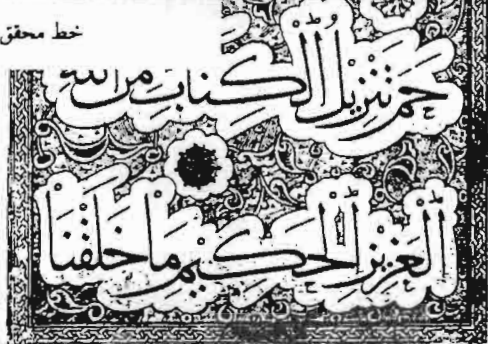 خط محقق
حم تنزيل الكتاب من الله
العزيز الحكيم ما خلقنا